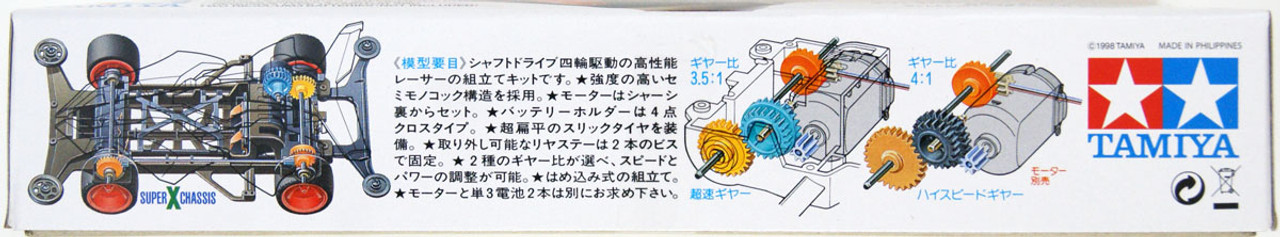 《模型要目》シャフトドライブ四輪駆動の高性能
レーサーの組立てキットです。★強度の高いセ
ミモノコック構造を採用。★モーターはシャーシ
裏からセット。★バッテリーホルダーは4点
クロスタイプ。★超扁平のスリックタイヤを装
備。★取り外し可能なリヤステーは2本のビス
で固定。★2種のギヤー比が選べ、スピードと
パワーの調整が可能。★はめ込み式の組立て。
★モーターと単3電池2本は別にお求め下さい。
SUPER X CHASSIS
ギヤー比
3.5:1
超速ギヤー
ギヤー比
4:1
モーター
別売
ハイスピードギヤー
©1998 TAMIYA MADE IN PHILIPPINES
TAMIYA